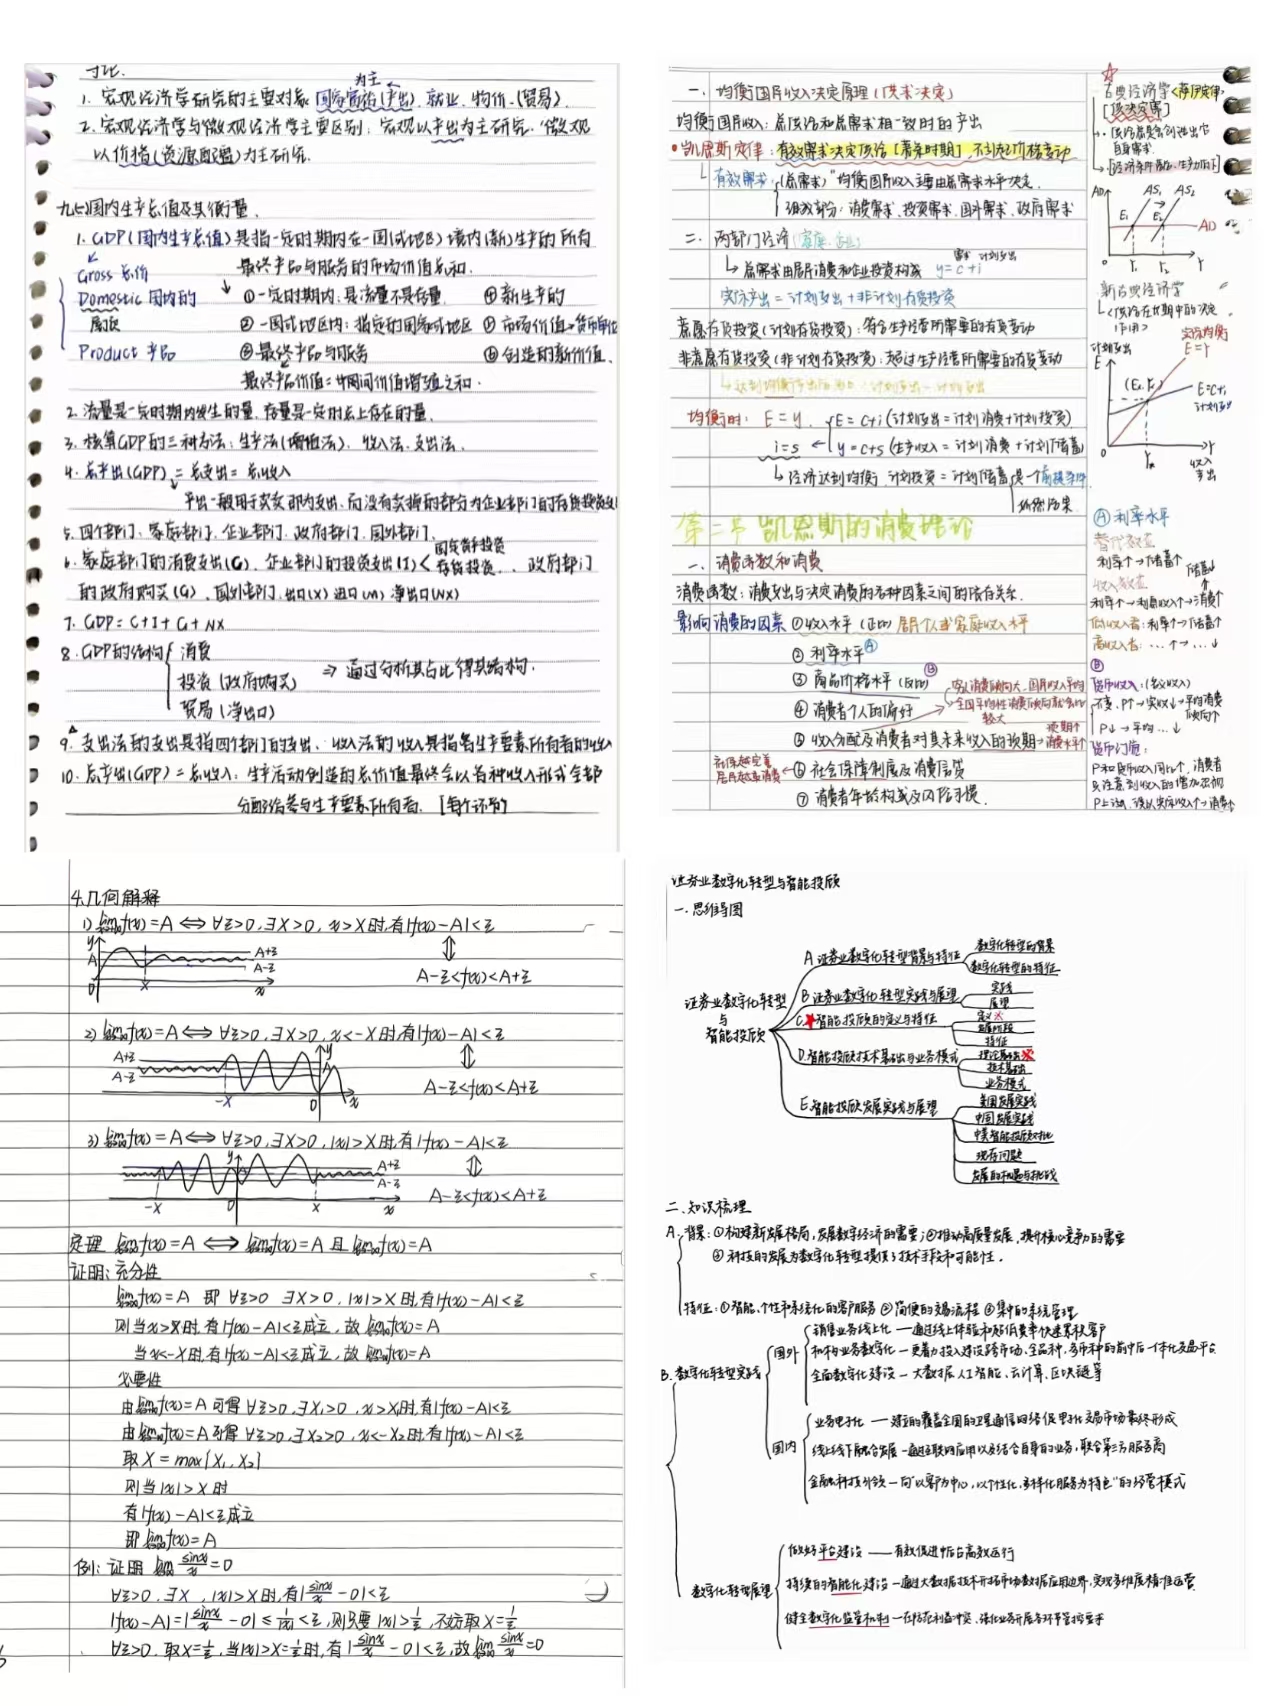 1. 宏观经济学研究的主要对象 国际富裕(产出)、就业、物价、(贸易).
为主
2. 宏观经济学与微观经济学主要区别: 宏观以产出为主研究. 微观
以价格(资源配置)为主研究.
国内生产总值及其衡量.
1. GDP(国内生产总值)是指一定时期内在一国(或地区)境内(新)生产的所有
最终产品与服务的市场价值总和.
Gross 总价
Domestic 国内的
Product 产品
①一定时期内: 是流量不是存量. ④新生产的
②一国或地区内: 指定的国家或地区 ⑤市场价值→货币单位
③最终产品与服务 ⑥创造的新价值.
最终产品价值=中间价值增殖之和.
2. 流量是一定时期内发生的量. 存量是一定时点上存在的量.
3. 核算GDP的三种方法: 生产法(增值法). 收入法. 支出法.
4. 总产出(GDP) = 总支出 = 总收入
5. 四个部门、家庭部门、企业部门、政府部门、国外部门.
6. 家庭部门的消费支出(C)、企业部门的投资支出(I)< 固定资产投资 存货投资 、政府部门
的政府购买(G)、国外部门.出口(X)进口(M)净出口(NX)
7. GDP = C+I+G+NX
8. GDP的结构 消费
投资(政府购买) ⇒ 通过分析其占比得其结构.
贸易(净出口)
9. 支出法的支出是指四个部门的支出、收入法的收入是指各生产要素所有者的收入
10. 总产出(GDP)=总收入: 生产活动创造的总价值最终会以各种收入形式全部
分配给参与生产要素所有者. [每个环节
一. 均衡国民收入决定原理(供求决定)
均衡国民收入: 总供给和总需求相一致时的产出
凯恩斯定律: 有效需求决定供给[萧条时期] 不引起价格变动
有效需求: (总需求) 均衡国民收入主要由总需求水平决定.
组成部分: 消费需求、投资需求、国外需求、政府需求
二. 两部门经济(家庭、企业)
总需求由居民消费和企业投资构成 y=c+i
需求 计划支出
实际产出=计划支出+非计划存货投资
意愿存货投资(计划存货投资): 符合生产经营所需要的存货变动
非意愿存货投资(非计划存货投资): 超过生产经营所需要的存货变动
均衡时: E=y. E=c+i(计划支出=计划消费+计划投资)
i=s ← y=c+s(生产收入=计划消费+计划储蓄)
经济达到均衡 计划投资=计划储蓄 是一个前提条件
第二节 凯恩斯的消费理论
一、消费函数和消费
消费函数: 消费支出与决定消费的各种因素之间的依存关系.
影响消费的因素 ①收入水平(正比) 居民个人或家庭收入水平
② 利率水平 Ⓐ
③ 商品价格水平(反比) Ⓑ
④ 消费者个人的偏好
⑤ 收入分配及消费者对其未来收入的预期→消费水平↑
预期↑
⑥ 社会保障制度及消费信贷
⑦ 消费者年龄构成及风俗习惯.
社保越完善
居民越敢消费
古典经济学<萨伊定律>
供给总是会创造出它
自身需求
AD AS₁ AS₂
E₁ E₂ AD
O Y₁ Y₂ Y
新古典经济学
计划支出
E E=Y
(E₀,Y₀) E=C+i
计划支出
O Y
收入
产出
Ⓐ 利率水平
替代效应
利率↑→储蓄↑
收入效应
利率↑→利息收入↑→消费↑
储蓄↓
低收入者: 利率↑→储蓄↑
高收入者: …↑→…↓
Ⓑ
货币收入:(名义收入)
不变、P↑→实收↓→平均消费
倾向↑
P↓→平均…↓
货币幻觉:
P和货币收入同比↑, 消费者
只注意到收入的增加忽视
P上涨, 误认实际收入↑→消费↑
4.几何解释
1) lim f(x)=A ⟺ ∀ε>0,∃X>0, x>X时,有|f(x)-A|<ε
⇕
A-ε<f(x)<A+ε
y A A+ε A-ε O X x
2) lim f(x)=A ⟺ ∀ε>0,∃X>0,x<-X时,有|f(x)-A|<ε
⇕
A-ε<f(x)<A+ε
A+ε A-ε y A -X O x
3) lim f(x)=A ⟺ ∀ε>0,∃X>0, |x|>X时,有|f(x)-A|<ε
⇕
A-ε<f(x)<A+ε
y A+ε A-ε -X O X x
定理 lim f(x)=A ⟺ lim f(x)=A 且 lim f(x)=A
证明: 充分性
lim f(x)=A 即 ∀ε>0 ∃X>0, |x|>X时,有|f(x)-A|<ε
则当x>X时,有|f(x)-A|<ε成立, 故 lim f(x)=A
当x<-X时,有|f(x)-A|<ε成立, 故 lim f(x)=A
必要性
由 lim f(x)=A 可得 ∀ε>0,∃X₁>0, x>X₁时,有|f(x)-A|<ε
由 lim f(x)=A 可得 ∀ε>0,∃X₂>0, x<-X₂时,有|f(x)-A|<ε
取 X=max{X₁,X₂}
则当|x|>X时
有|f(x)-A|<ε成立
即 lim f(x)=A
例: 证明 lim sinx/x=0
∀ε>0,∃X, |x|>X时,有|sinx/x-0|<ε
|f(x)-A|=|sinx/x-0|≤1/|x|<ε,则只要|x|>1/ε,不妨取X=1/ε
∀ε>0.取X=1/ε,当|x|>X=1/ε时,有|sinx/x-0|<ε,故 lim sinx/x=0
证券业数字化转型与智能投顾
一.思维导图
证券业数字化转型
与
智能投顾
A 证券业数字化转型背景与特征
数字化转型的背景
数字化转型的特征
B 证券业数字化转型实践与展望
实践
展望
C.★智能投顾的定义与特征
定义
发展阶段
特征
D.智能投顾技术基础与业务模式
理论基础
技术基础
业务模式
E.智能投顾发展实践与展望
美国发展实践
中国发展实践
中美智能投顾对比
现存问题
发展的机遇与挑战
二.知识梳理
A. 背景: ①构建新发展格局,发展数字经济的需要;②推动高质量发展,提升核心竞争力的需要
③科技的发展为数字化转型提供了技术手段和可能性.
特征: ①智能、个性和系统化的客户服务 ②简便的交易流程 ③集中的系统管理
B. 数字化转型实践
国外
销售业务线上化 — 通过线上体验和超低费率快速累积客户
机构业务数字化 — 更着力投入建设跨市场、全品种、多币种的前中后一体化交易平台
全面数字化建设 — 大数据、人工智能、云计算、区块链等
国内
业务电子化 — 建立的覆盖全国的卫星通信网络促电子化交易市场最终形成
线上线下融合发展 — 通过互联网应用以及结合自身的业务,联合第三方服务商
金融科技引领 — 向"以客户为中心,以个性化,多样化服务为特色"的经营模式
数字化转型展望
做好平台建设 — 有效促进中后台高效运行
持续的智能化建设 — 通过大数据技术开拓市场数据应用边界,实现多维度精准运营
健全数字化监管机制 — 在防范利益冲突、强化业务开展各环节管控要求